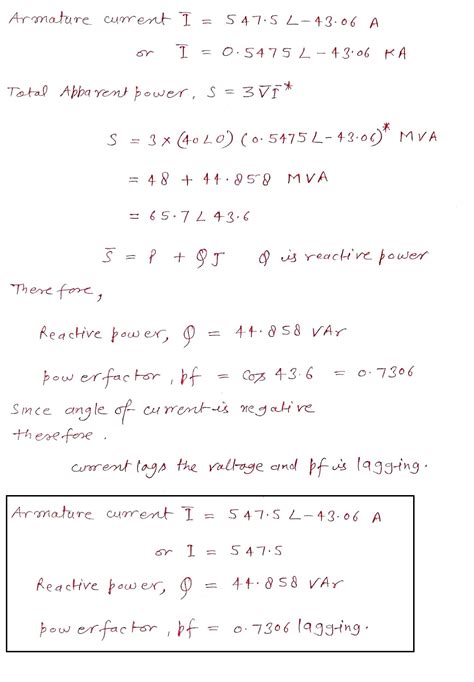 Armature current I̅ = 547.5 ∠-43.06 A
or I̅ = 0.5475 ∠-43.06 KA
Total Apparent power, S = 3V̅I̅*
S = 3 × (40∠0) (0.5475∠-43.06)* MVA
= 48 + 44.858 MVA
= 65.7∠43.6
S̅ = P + QJ Q is reactive power
Therefore,
Reactive power, Q = 44.858 VAr
power factor, pf = Cos 43.6 = 0.7306
Since angle of current is negative
therefore.
current lags the valtage and pf is lagging.
Armature current I̅ = 547.5 ∠-43.06 A
or I = 547.5
Reactive power, Q = 44.858 VAr
power factor, pf = 0.7306 lagging.